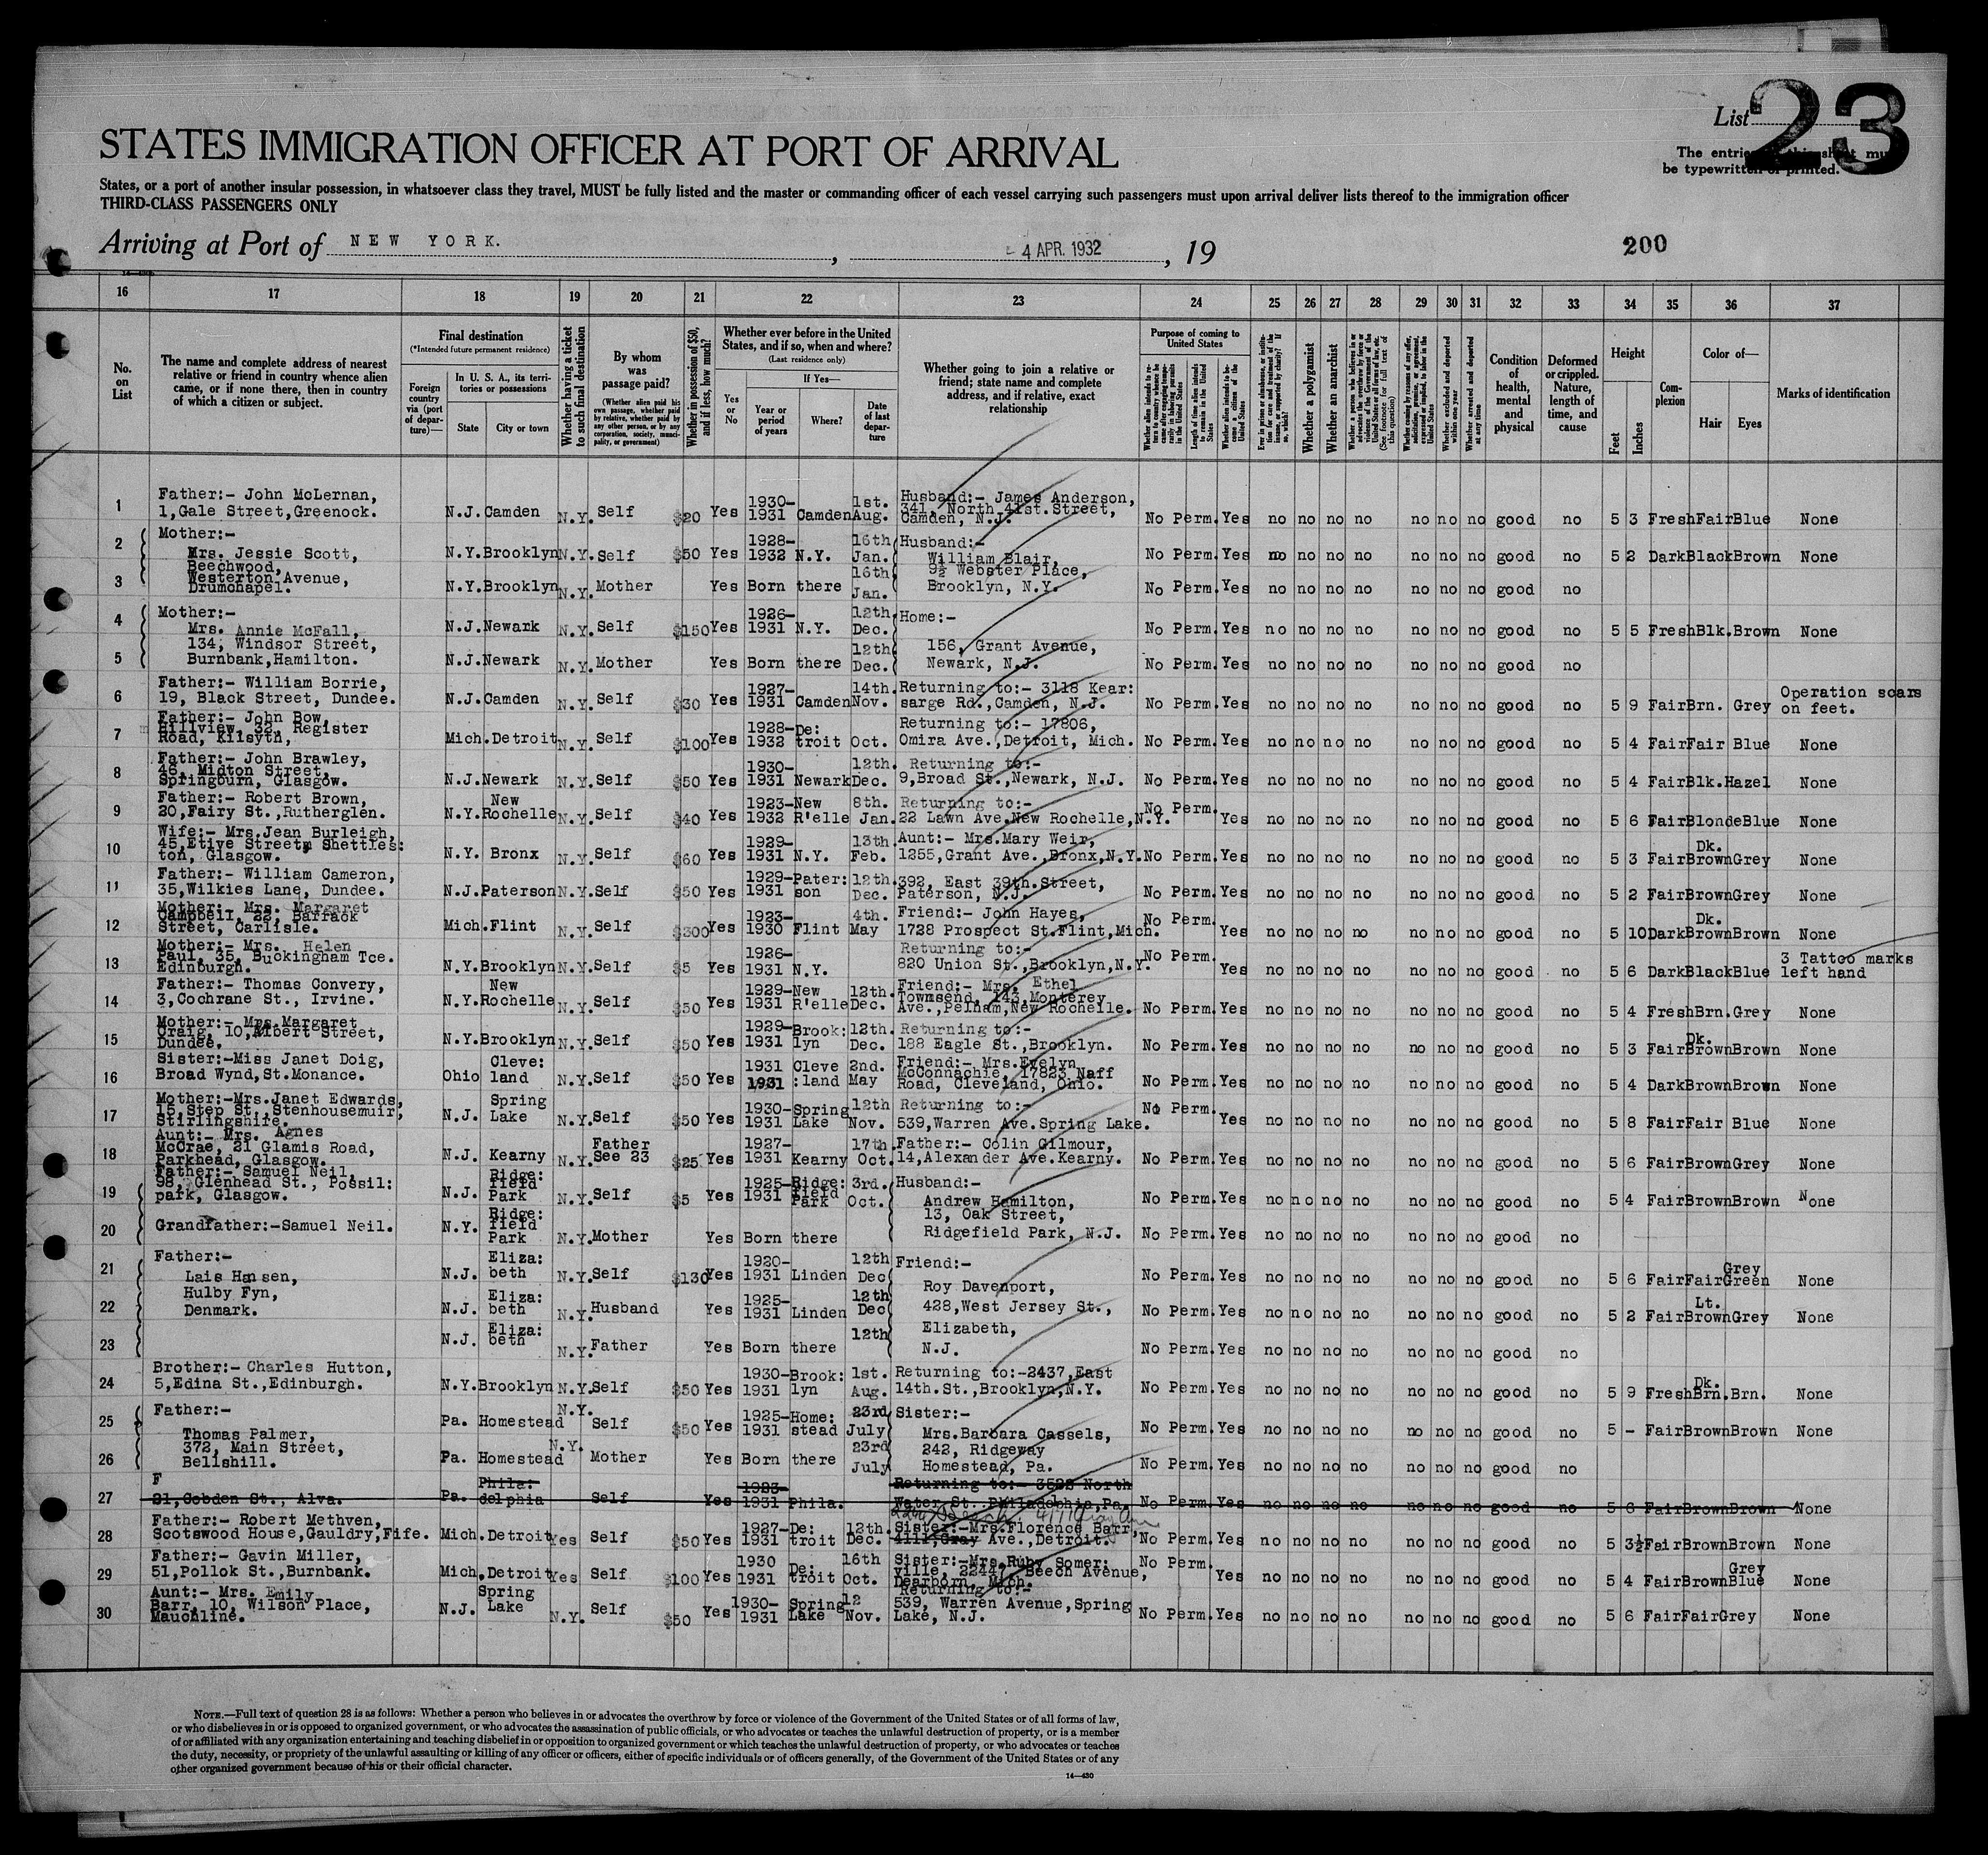 List 23
The entries on this sheet must
be typewritten or printed.
STATES IMMIGRATION OFFICER AT PORT OF ARRIVAL
States, or a port of another insular possession, in whatsoever class they travel, MUST be fully listed and the master or commanding officer of each vessel carrying such passengers must upon arrival deliver lists thereof to the immigration officer
THIRD-CLASS PASSENGERS ONLY
Arriving at Port of NEW YORK. , 4 APR. 1932 , 19
200
16 17 18 19 20 21 22 23 24 25 26 27 28 29 30 31 32 33 34 35 36 37
No. on List
The name and complete address of nearest
relative or friend in country whence alien
came, or if none there, then in country
of which a citizen or subject.
Final destination
(*Intended future permanent residence)
Foreign country via (port of departure)—
In U. S. A., its territories or possessions
State City or town
Whether having a ticket to such final destination
By whom was passage paid?
(Whether alien paid his own passage, whether paid by relative, whether paid by any other person, or by any corporation, society, municipality, or government)
Whether in possession of $50, and if less, how much?
Whether ever before in the United States, and if so, when and where?
(Last residence only)
Yes or No
If Yes—
Year or period of years Where? Date of last departure
Whether going to join a relative or
friend; state name and complete
address, and if relative, exact
relationship
Purpose of coming to United States
Length of time alien intends to remain in the United States
Whether alien intends to become a citizen of the United States
Whether a polygamist
Whether an anarchist
Whether excluded and deported within one year
Whether arrested and deported at any time
Condition of health, mental and physical
Deformed or crippled. Nature, length of time, and cause
Height
Feet Inches
Complexion
Color of—
Hair Eyes
Marks of identification
1 Father:- John McLernan, 1,Gale Street,Greenock. N.J. Camden N.Y. Self $20 Yes 1930-1931 Camden 1st. Aug. Husband:- James Anderson, 341, North 41st. Street, Camden, N.J. No Perm. Yes no no no no no no no good no 5 3 Fresh Fair Blue None
2 Mother:- Mrs. Jessie Scott, Beechwood, N.Y. Brooklyn N.Y. Self $50 Yes 1928-1932 N.Y. 16th Jan. Husband:- William Blair, No Perm. Yes no no no no no no no good no 5 2 Dark Black Brown None
3 Westerton Avenue, Drumchapel. N.Y. Brooklyn N.Y. Mother Yes Born there 16th Jan. 9½ Webster Place, Brooklyn, N.Y. No Perm. Yes no no no no no no no good no
4 Mother:- Mrs. Annie McFall, N.J. Newark N.Y. Self $150 Yes 1926-1931 N.Y. 12th. Dec. Home:- No Perm. Yes no no no no no no no good no 5 5 Fresh Blk. Brown None
5 134, Windsor Street, Burnbank,Hamilton. N.J. Newark N.Y. Mother Yes Born there 12th Dec. 156, Grant Avenue, Newark, N.J. No Perm. Yes no no no no no no no good no
6 Father:- William Borrie, 19, Black Street, Dundee. N.J. Camden N.Y. Self $30 Yes 1927-1931 Camden 14th. Nov. Returning to:- 3118 Kear: sarge Rd.,Camden, N.J. No Perm. Yes no no no no no no no good no 5 9 Fair Brn. Grey Operation scars on feet.
7 Father:- John Bow, Hillview, 32, Register Road, Kilsyth, Mich. Detroit N.Y. Self $100 Yes 1928-1932 De: troit Oct. Returning to:- 17806, Omira Ave.,Detroit, Mich. No Perm. Yes no no no no no no no good no 5 4 Fair Fair Blue None
8 Father:- John Brawley, 46, Midton Street, Springburn, Glasgow. N.J. Newark N.Y. Self $50 Yes 1930-1931 Newark 12th. Dec. Returning to:- 9,Broad St.,Newark, N.J. No Perm. Yes no no no no no no no good no 5 4 Fair Blk. Hazel None
9 Father:- Robert Brown, 20,Fairy St.,Rutherglen. N.Y. New Rochelle N.Y. Self $40 Yes 1923-1932 New R'elle 8th. Jan. Returning to:- 22 Lawn Ave.New Rochelle,N.Y. No Perm. Yes no no no no no no no good no 5 6 Fair Blonde Blue None
10 Wife:- Mrs.Jean Burleigh, 45,Etive Street, Shettles: ton, Glasgow. N.Y. Bronx N.Y. Self $60 Yes 1929-1931 N.Y. 13th. Feb. Aunt:- Mrs.Mary Weir, 1255,Grant Ave.,Bronx,N.Y. No Perm. Yes no no no no no no no good no 5 3 Fair Dk. Brown Grey None
11 Father:- William Cameron, 35,Wilkies Lane, Dundee. N.J. Paterson N.Y. Self $50 Yes 1929-1931 Pater: son 12th. Dec. 392, East 39th.Street, Paterson, N.J. No Perm. Yes no no no no no no no good no 5 2 Fair Brown Grey None
12 Mother:- Mrs. Margaret Campbell, 22, Barrack Street, Carlisle. Mich. Flint N.Y. Self $300 Yes 1923-1930 Flint 4th. May Friend:- John Hayes, 1728 Prospect St.Flint,Mich. No Perm. Yes no no no no no no no good no 5 10 Dark Dk. Brown Brown None
13 Mother:- Mrs. Helen Paul, 35, Buckingham Tce. Edinburgh. N.Y. Brooklyn N.Y. Self $5 Yes 1926-1931 N.Y. Returning to:- 820 Union St.,Brooklyn,N.Y. No Perm. Yes no no no no no no no good no 5 6 Dark Black Blue 3 Tattoo marks left hand
14 Father:- Thomas Convery, 3,Cochrane St., Irvine. N.Y. New Rochelle N.Y. Self $50 Yes 1929-1931 New R'elle 12th. Dec. Friend:- Mrs. Ethel Townsend, 143,Monterey Ave.,Pelham,New Rochelle. No Perm. Yes no no no no no no no good no 5 4 Fresh Brn. Grey None
15 Mother:- Mrs.Margaret Craig, 10,Albert Street, Dundee. N.Y. Brooklyn N.Y. Self $50 Yes 1929-1931 Brook: lyn 12th. Dec. Returning to:- 188 Eagle St.,Brooklyn. No Perm. Yes no no no no no no no good no 5 3 Fair Dk. Brown Brown None
16 Sister:-Miss Janet Doig, Broad Wynd,St.Monance. Ohio Cleve: land N.Y. Self $50 Yes 1931 1931 Cleve :land 2nd. May Friend:- Mrs.Evelyn McConnachie, 17823 Naff Road, Cleveland, Ohio. No Perm. Yes no no no no no no no good no 5 4 Dark Brown Brown None
17 Mother:-Mrs.Janet Edwards, 15,Step St.,Stenhousemuir, Stirlingshire. N.J. Spring Lake N.Y. Self $50 Yes 1930-1931 Spring Lake 12th Nov. Returning to:- 539,Warren Ave.Spring Lake. No Perm. Yes no no no no no no no good no 5 8 Fair Fair Blue None
18 Aunt:- Mrs. Agnes McCrae, 21 Glamis Road, Parkhead, Glasgow. N.J. Kearny N.Y. Father See 23 $25 Yes 1927-1931 Kearny 17th. Oct. Father:- Colin Gilmour, 14,Alexander Ave.Kearny. No Perm. Yes no no no no no no no good no 5 6 Fair Brown Grey None
19 Father:- Samuel Neil, 98, Glenhead St., Possil: park, Glasgow. N.J. Ridge: field Park N.Y. Self $5 Yes 1925-1931 Ridge: field Park 3rd. Oct. Husband:- Andrew Hamilton, No Perm. Yes no no no no no no no good no 5 4 Fair Brown Brown None
20 Grandfather:-Samuel Neil. N.Y. Ridge: field Park N.Y. Mother Yes Born there 13, Oak Street, Ridgefield Park, N.J. No Perm. Yes no no no no no no no good no
21 Father:- Lais Hansen, N.J. Eliza: beth N.Y. Self $130 Yes 1920-1931 Linden 12th Dec Friend:- Roy Davenport, No Perm. Yes no no no no no no no good no 5 6 Fair Fair Grey Green None
22 Hulby Fyn, Denmark. N.J. Eliza: beth N.Y. Husband Yes 1925-1931 Linden 12th Dec 428,West Jersey St., No Perm. Yes no no no no no no no good no 5 2 Fair Lt. Brown Grey None
23 N.J. Eliza: beth N.Y. Father Yes Born there 12th Elizabeth, N.J. No Perm. Yes no no no no no no no good no
24 Brother:- Charles Hutton, 5,Edina St.,Edinburgh. N.Y. Brooklyn N.Y. Self $50 Yes 1930-1931 Brook: lyn 1st. Aug. Returning to:-2437,East 14th.St.,Brooklyn,N.Y. No Perm. Yes no no no no no no no good no 5 9 Fresh Dk. Brn. Brn. None
25 Father:- Thomas Palmer, Pa. Homestead N.Y. Self $50 Yes 1925-1931 Home: stead 23rd July Sister:- Mrs.Barbara Cassels, No Perm. Yes no no no no no no no good no 5 - Fair Brown Brown None
26 372, Main Street, Bellshill. Pa. Homestead N.Y. Mother Yes Born there 23rd July 242, Ridgeway Homestead, Pa. No Perm. Yes no no no no no no no good no
27 F 21,Cobden St., Alva. Pa. Phila: delphia Self Yes 1923-1931 Phila. Returning to:- 3522 North Water St. Philadelphia,Pa. No Perm. Yes no no no no no no no good no 5 6 Fair Brown Brown None
28 Father:- Robert Methven, Scotswood House,Gauldry,Fife. Mich. Detroit Yes Self $50 Yes 1927-1931 De: troit 12th. Dec. Sister:-Mrs.Florence Barr, 4111,Gray Ave.,Detroit. No Perm. Yes no no no no no no no good no 5 3½ Fair Brown Brown None
29 Father:- Gavin Miller, 51,Pollok St.,Burnbank. Mich. Detroit Yes Self $100 Yes 1930 1931 De: troit 16th Oct. Sister:-Mrs.Ruby Somer: ville, 22447, Beech Avenue, Dearborn, Mich. No Perm. Yes no no no no no no no good no 5 4 Fair Brown Grey Blue None
30 Aunt:- Mrs. Emily Barr, 10, Wilson Place, Mauchline. N.J. Spring Lake N.Y. Self $50 Yes 1930-1931 Spring Lake 12 Nov. Returning to:- 539, Warren Avenue,Spring Lake, N.J. No Perm. Yes no no no no no no no good no 5 6 Fair Fair Grey None
NOTE.—Full text of question 28 is as follows: Whether a person who believes in or advocates the overthrow by force or violence of the Government of the United States or of all forms of law,
or who disbelieves in or is opposed to organized government, or who advocates the assassination of public officials, or who advocates or teaches the unlawful destruction of property, or is a member
of or affiliated with any organization entertaining and teaching disbelief in or opposition to organized government or which teaches the unlawful destruction of property, or who advocates or teaches
the duty, necessity, or propriety of the unlawful assaulting or killing of any officer or officers, either of specific individuals or of officers generally, of the Government of the United States or of any
other organized government because of his or their official character.
14—430